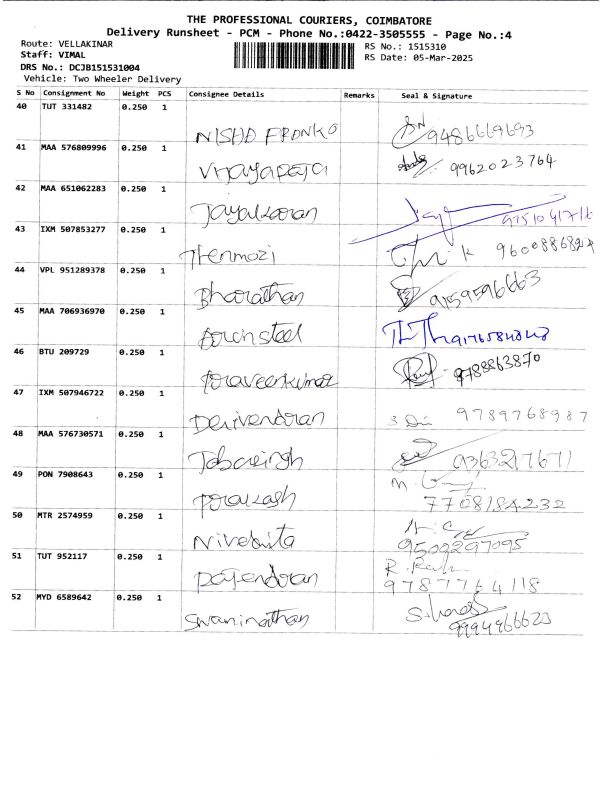 THE PROFESSIONAL COURIERS, COIMBATORE
Delivery Runsheet - PCM - Phone No.:0422-3505555 - Page No.:4
Route: VELLAKINAR
RS No.: 1515310
Staff: VIMAL
RS Date: 05-Mar-2025
DRS No.: DCJB151531004
Vehicle: Two Wheeler Delivery
S No Consignment No Weight PCS Consignee Details Remarks Seal & Signature
40 TUT 331482 0.250 1
9486669693
41 MAA 576809996 0.250 1
9962023764
42 MAA 651062283 0.250 1
43 IXM 507853277 0.250 1
Thenmozi
44 VPL 951289378 0.250 1
Bharathan 9159596663
45 MAA 706936970 0.250 1
46 BTU 209729 0.250 1
Praveenkumar 9788863870
47 IXM 507946722 0.250 1
9789768987
48 MAA 576730571 0.250 1
49 PON 7908643 0.250 1
Prakash 7708184232
50 MTR 2574959 0.250 1
9502297095
51 TUT 952117 0.250 1
Rajendran 9787764118
52 MYD 6589642 0.250 1
Swaninathan